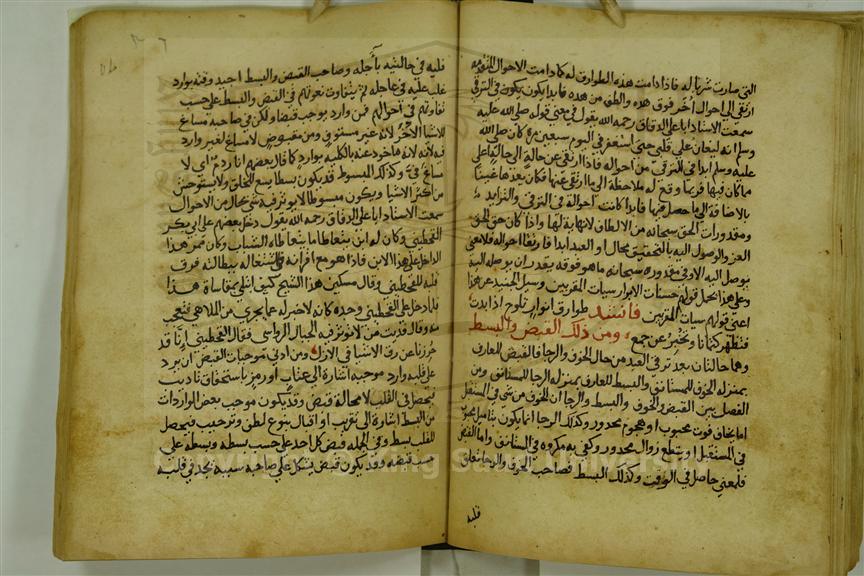 التي صارت شربا له فاذا دامت هذه الطوارق له كما دامت الاحوال المتقدمة
ارتقى الى احوال اخر فوق هذه والطف من هذه فابدا يكون في الترقي
سمعت الاستاذ ابا علي الدقاق رحمه الله يقول في معنى قوله صلى الله عليه
وسلم انه ليغان على قلبي حتى استغفر في اليوم سبعين مرة كان صلى الله
عليه وسلم ابدا في الترقي من احواله فاذا ارتقى عن حالة الى حالة اعلى
مما كان فيها فربما وقع له ملاحظة الى ما ارتقى عنها فكان يعدها غينا
بالاضافة الى ما حصل فيها فابدا كانت احواله في الترقي والتزايد
ومقدورات الحق سبحانه من الالطاف لا نهاية لها واذا كان حق الحق
العز والوصول اليه بالتحقيق محال والعبد ابدا في ارتقا احواله فلا معنى
يوصل اليه الا وفي مقدوره سبحانه ما هو فوقه يقدر ان يوصله اليه
وعلى هذا يحمل قولهم حسنات الابرار سيات المقربين وسيل الجنيد عن هذا
اعني قولهم سيات المقربين فانشد طوارق انوار تلوح اذا بدت
فتظهر كتمانا وتخبر عن جمع ومن ذلك القبض والبسط
وهما حالتان بعد ترقي العبد عن حال الخوف والرجا فالقبض للعارف
بمنزلة الخوف للمستانف والبسط للعارف بمنزلة الرجا للمستانف ومن
الفصل بين القبض والخوف والبسط والرجا ان الخوف من شي في المستقبل
اما يخاف فوت محبوب او هجوم محذور وكذلك الرجا انما يكون بتاميل محبوب
في المستقبل او بتطلع زوال محذور وكفى به مكروه في المستانف واما القبض
فلمعنى حاصل في الوقت وكذلك البسط فصاحب الخوف والرجا تعلق
قلبه
قلبه في حالتيه باجله وصاحب القبض والبسط اخيذ وقته بوارد
غلب عليه في عاجله ثم يتفاوت نعوتهم في القبض والبسط على حسب
تفاوتهم في احوالهم فمن وارد يوجب قبضا ولكن في صاحبه مساغ
للاشيا الاخر لانه غير مستوفى ومن مقبوض لا مساغ لغير وارده
فيه لانه لانه ماخوذ عنه بالكلية بوارده كما قال بعضهم انا ردم اي لا
مساغ في وكذلك المبسوط قد يكون بسطا يسع الخلق ولا يستوحش
من اكثر الاشيا ويكون مبسوطا لا يوثر فيه شي بحال من الاحوال
سمعت الاستاذ ابا علي الدقاق رحمه الله يقول دخل بعضهم على ابي بكر
القحطبي وكان له ابن يتعاطا ما يتعاطاه الشباب وكان ممر هذا
الداخل على هذا الابن فاذا هو مع اقرانه في اشتغاله ببطالته فرق
قلبه للقحطبي وقال مسكين هذا الشيخ كيف ابتلي بمقاساة هذا
فلما دخل على القحطبي وحده كانه لا خبر له مما يجري من الملاهي فتعجب
منه وقال فديت من لا توثر فيه الجبال الرواسي فقال القحطبي انا قد
حررنا عن رق الاشيا في الازل ومن ادنى موجبات القبض ان يرد
على قلبه وارد موجبه اشارة الى عتاب او رمز باستحقاق تاديب
فيحصل في القلب لا محالة قبض وقد يكون موجب بعض الواردات
من البسط اشارة الى تقريب او اقبال بنوع لطف وترحيب فيحصل
للقلب بسط وفي الجملة قبض كل احد على حسب بسطه وبسطه على
حسب قبضه وقد يكون قبض يشكل على صاحبه سببه يجد في قلبه